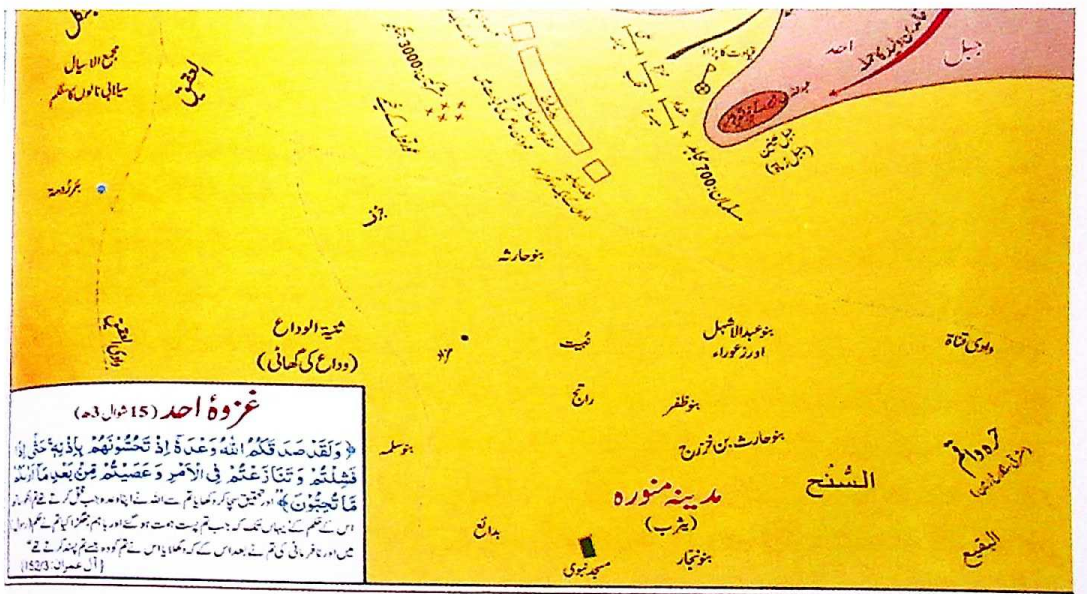 مجمع الاسیال
سیلابی نالوں کا سنگم
العقیق
بئر رومہ
وادی العقیق
جرف
مشرکین: 3000
عورتوں کے خیمے
مسلمان: 700 مجاہد
قیادت کا پڑاؤ
احد
جبل
خالد بن ولید کا حملہ
(جبل رماۃ)
بنو حارثہ
ثنیۃ الوداع
(وداع کی گھاٹی)
بنو عبدالاشہل
اور زعوراء
وادی قناۃ
راتج
بنو ظفر
بنو سلمہ
بنو حارث بن خزرج
حرہ واقم
السُّنْح
مدینہ منورہ
(یثرب)
بدائع
بنو نجار
مسجد نبوی
البقیع
غزوۂ احد (15 شوال 3ھ)
﴿ وَلَقَدْ صَدَقَكُمُ اللّٰهُ وَعْدَهٗۤ اِذْ تَحُسُّوْنَهُمْ بِاِذْنِهٖ حَتّٰۤی اِذَا
فَشِلْتُمْ وَتَنَازَعْتُمْ فِی الْاَمْرِ وَعَصَیْتُمْ مِّنْۢ بَعْدِ مَاۤ اَرٰىكُمْ
مَّا تُحِبُّوْنَ ﴾ "اور تحقیق سچا کر دکھایا تم سے اللہ نے اپنا وعدہ جب قتل کرتے تھے تم کفار کو
اس کے حکم سے یہاں تک کہ جب تم پست ہمت ہو گئے اور باہم جھگڑا کیا تم نے حکم (رسول)
میں اور نافرمانی کی تم نے بعد اس کے کہ دکھلایا اس نے تم کو وہ جسے تم پسند کرتے تھے"
(آل عمران: 152/3)